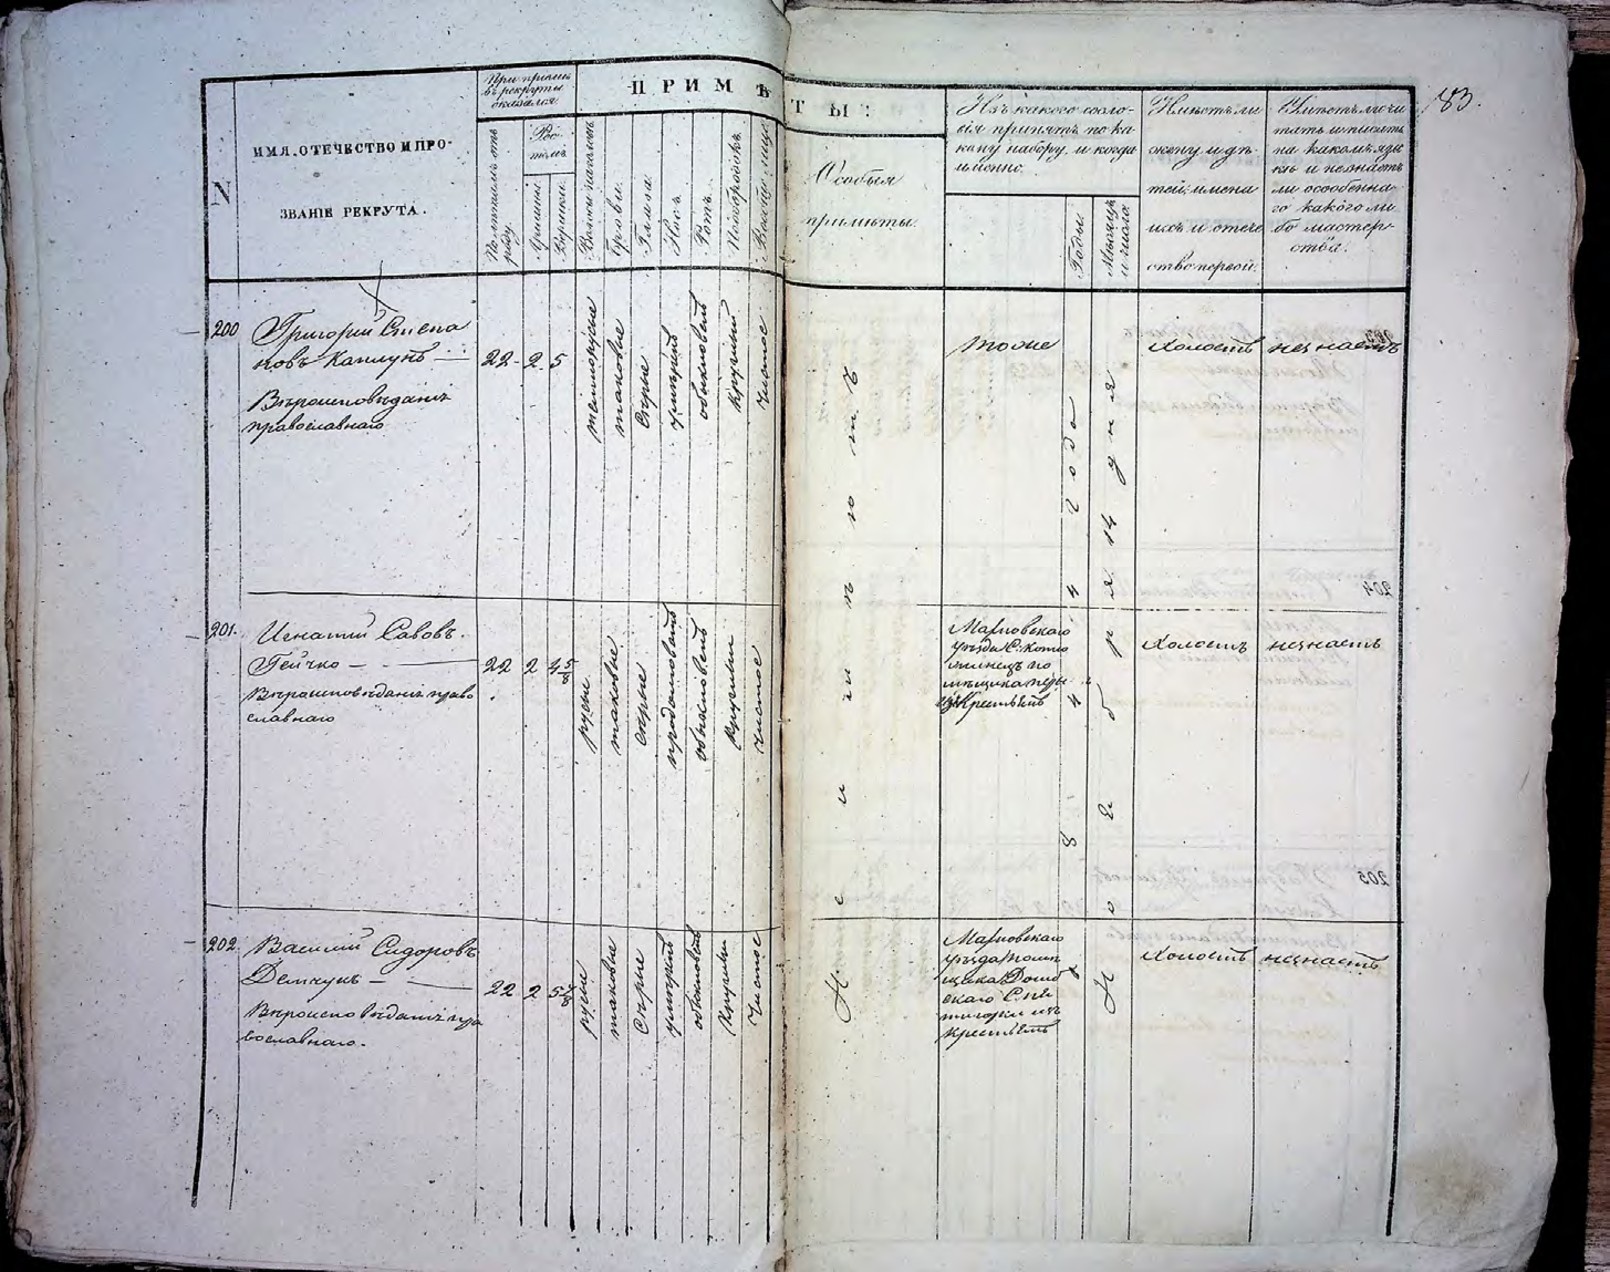 83.
N
ИМЯ, ОТЕЧЕСТВО И ПРО-
ЗВАНІЕ РЕКРУТА.
При приемѣ
въ рекруты
оказался
Полѣтамъ отъ
роду.
Рос-
томъ
Аршинъ
Вершки.
ПРИМѢТЫ:
Волосы наголовѣ
Брови.
Глаза.
Носъ.
Ротъ.
Подбородокъ.
Вообще лице
Особыя
примѣты.
Изъ какого сосло-
вія принятъ по ка-
кому набору, и когда
именно.
Годы
Мѣсяцъ
и число
Имѣетъ ли
жену и дѣ-
тей, имена
ихъ и отече
ство первой.
Умѣетъ ли чи
тать и писать
на какомъ язы
кѣ и не знаетъ
ли особенна-
го какого ли
бо мастер-
ства.
200
Григорий Степа
новъ Каплунъ
Вѣроисповѣданія
православнаго
22 2 5
темнорусые
таковые
Сѣрые
умѣренъ
обыкновенъ
круглый
чистое
тоже
Холостъ
незнаетъ
201.
Игнатий Савовъ.
Гейчко
Вѣроисповѣданія право
славнаго
22 2 4 5/8
русые
таковые
сѣрые
продолговатъ
обыкновенъ
Круглый
чистое
уѣзда С.
Крестьянъ
Холостъ
незнаетъ
202.
Василий Сидоровъ
Демчукъ
Вѣроисповѣданія пра
вославнаго.
22 2 5
русые
таковые
Сѣрые
умѣренъ
обыкновенъ
Круглый
Чистое
уѣзда помѣ
щика
скаго С. пя
тигорки изъ
крестьянъ
Холостъ
незнаетъ
Не имѣются
844 года
Ноября 14 дня
204
205